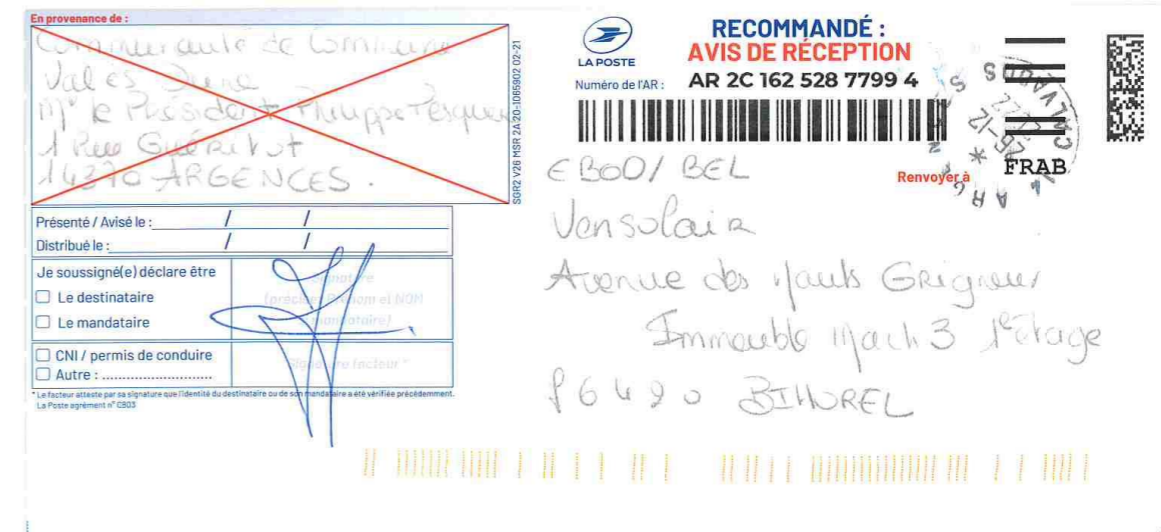 En provenance de :
Communauté de Commune
Val es Dune
Mr le Président Philippe Pesquer
1 Rue Guéritot
14370 ARGENCES.
SGR2 V26 MSR 2A 20-1085902 02-21
Présenté / Avisé le : / /
Distribué le : / /
Je soussigné(e) déclare être
Le destinataire
Le mandataire
Signature
(préciser Prénom et NOM
mandataire)
CNI / permis de conduire
Autre : ............................
Signature facteur *
* Le facteur atteste par sa signature que l'identité du destinataire ou de son mandataire a été vérifiée précédemment.
La Poste agrément n° C903
LA POSTE
RECOMMANDÉ :
AVIS DE RÉCEPTION
Numéro de l'AR : AR 2C 162 528 7799 4
Renvoyer à
FRAB
CALVADOS
26-12
22
EBOD/ BEL
Vensolair
Avenue des Hauts Grigneux
Immeuble Mach 3 1er étage
76420 BIHOREL